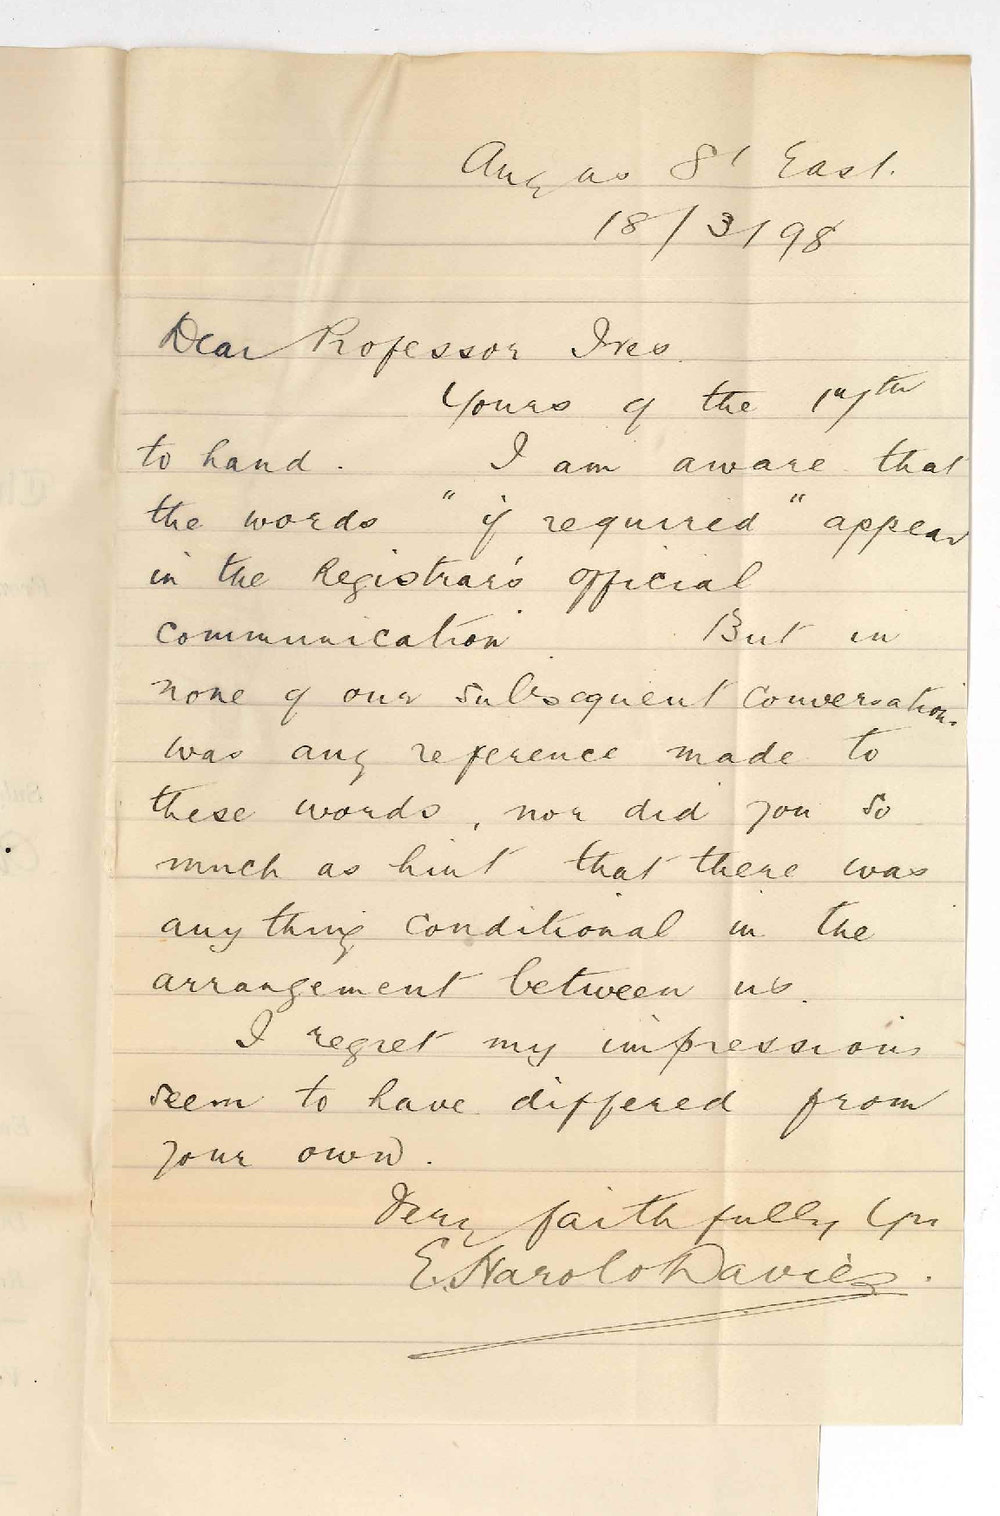 Angas St East.
18/3/98
Dear Professor Ives.
Yours of the 17th
to hand. I am aware that
the words "if required" appear
in the Registrar's official
communication. But in
none of our subsequent conversations
was any reference made to
these words, nor did you so
much as hint that there was
any thing conditional in the
arrangement between us.
I regret my impressions
seem to have differed from
your own.
Very faithfully Yrs
E. Harold Davies.